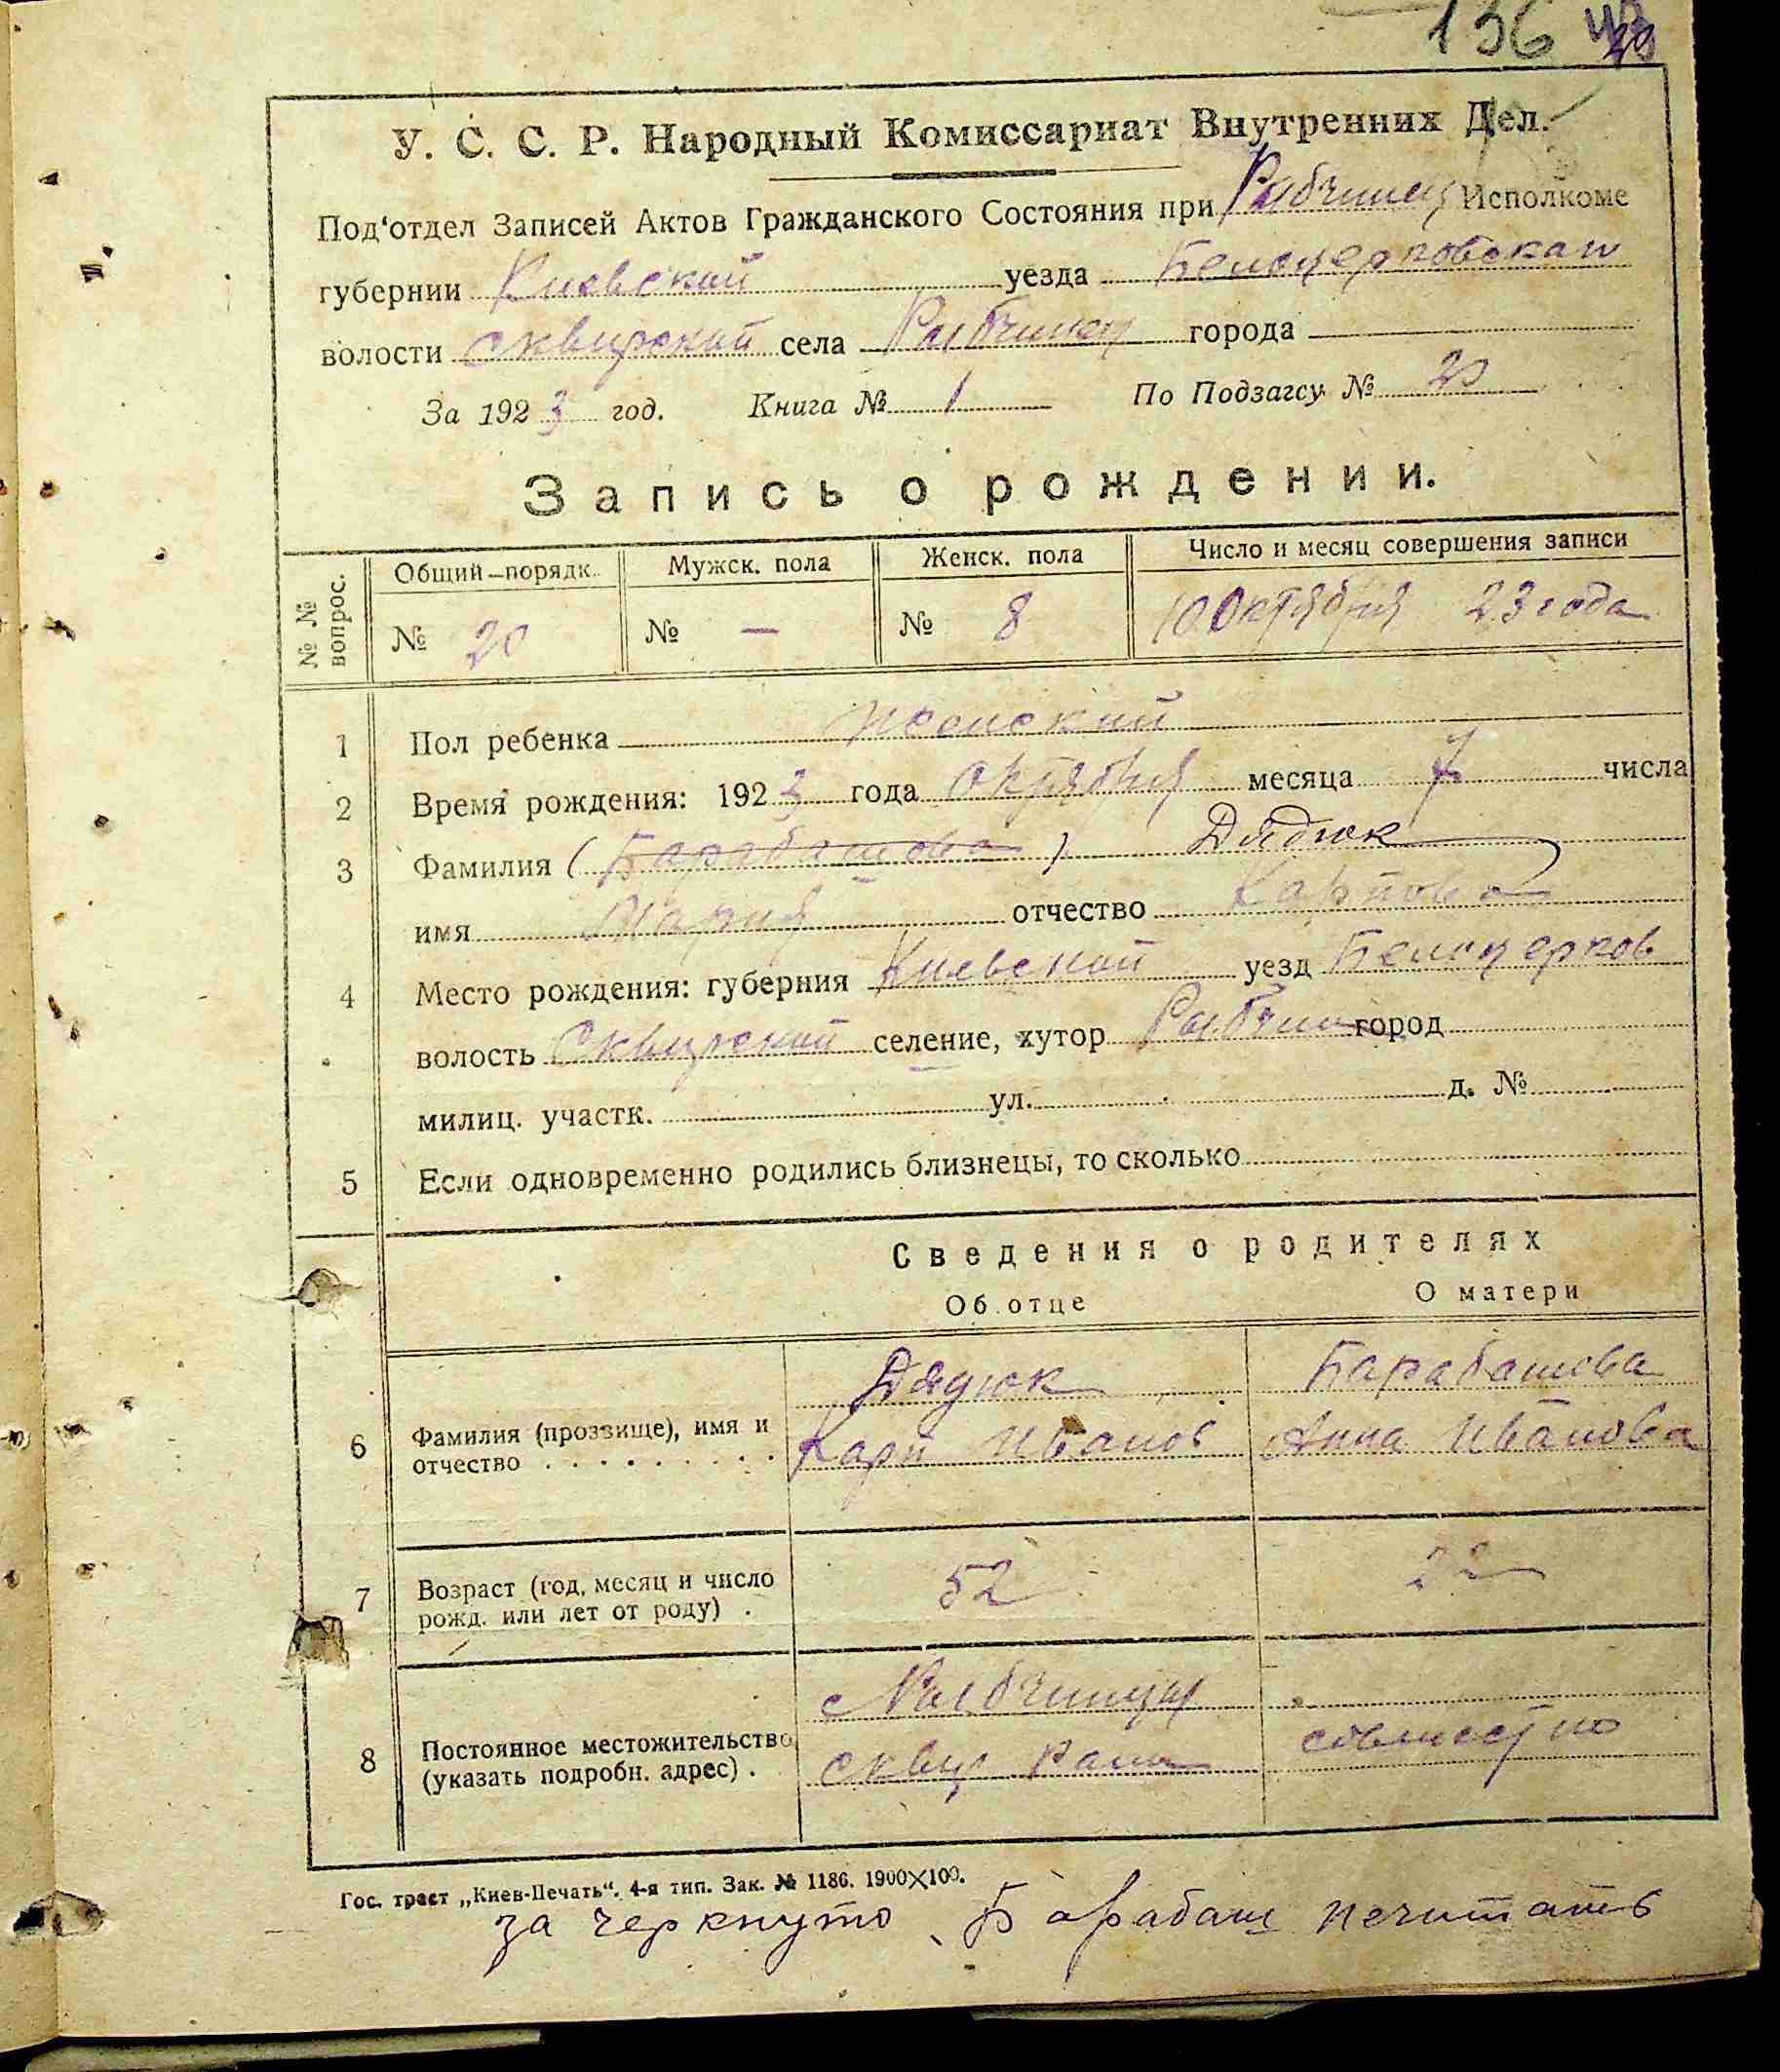 136
У. С. С. Р. Народный Комиссариат Внутренних Дел.
Под'отдел Записей Актов Гражданского Состояния при Рыбчинец Исполкоме
губернии Киевской уезда Белоцерковскаго
волости Сквирской села Рыбчинец города
За 1923 год. Книга № 1 По Подзагсу № 20
Запись о рождении.
№ № вопрос. Общий-порядк. Мужск. пола Женск. пола Число и месяц совершения записи
№ 20 № — № 8 10 Октября 23 года
1 Пол ребенка женский
2 Время рождения: 1923 года Октября месяца 7 числа
3 Фамилия (Барабашова) Дядюк
имя Мария отчество Карпова
4 Место рождения: губерния Киевской уезд Белоцерков
волость Сквирской селение, хутор Рыбчин город
милиц. участк. ул. д. №
5 Если одновременно родились близнецы, то сколько
Сведения о родителях
Об отце О матери
Дядюк Барабашева
6 Фамилия (прозвище), имя и отчество Карп Иванов Анна Иванова
7 Возраст (год, месяц и число рожд. или лет от роду) . 52 22
8 Постоянное местожительство (указать подробн. адрес) . с Рыбчинцы
Сквир совместно
Гос. трест „Киев-Печать“. 4-я тип. Зак. № 1186. 1900×100.
за черкнуто Барабаш нечитать